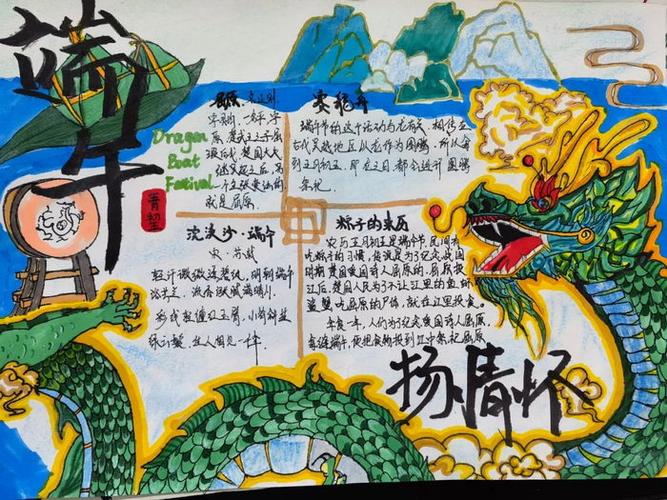 端午
Dragon
Boat
Festival
屈原
赛龙舟
端午节的这个活动与龙有关，相传在
古代吴越地区以龙作为图腾，所以每
到五月初五，即龙之日，都会进行图腾
祭祀。
就是屈原。
浣溪沙·端午
宋·苏轼
轻汗微微透碧纨，明朝端午
浴芳兰。流香涨腻满晴川。
彩线轻缠红玉臂，小符斜挂
绿云鬟。佳人相见一千年
粽子的来历
农历五月初五是端午节，民间有
吃粽子的习惯，传说是为了纪念战国
时期楚国爱国诗人屈原的。屈原投
江后，楚国人民为了不让江里的鱼虾
吃屈原的尸体，就往江里投食。
年复一年，人们为了纪念爱国诗人屈原，
每逢端午，便把食物投到江中祭祀屈原
扬情怀